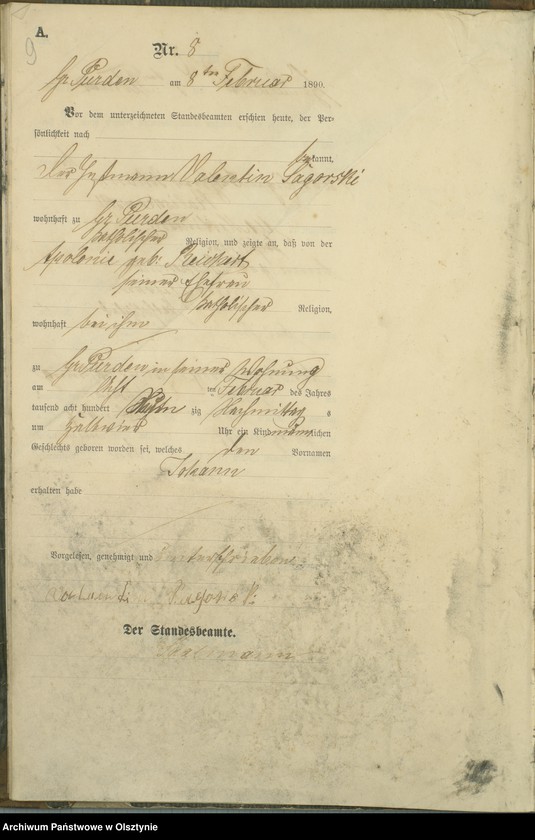 A.
9
Nr. 8
Gr Purden am 8ten Februar 1890.
Vor dem unterzeichneten Standesbeamten erschien heute, der Per-
sönlichkeit nach
bekannt,
Der Instmann Valentin Sagorski
wohnhaft zu Gr Purden
katholischer Religion, und zeigte an, daß von der
Apolonie geb:
seiner Ehefrau
katholischer Religion,
wohnhaft bei ihm
zu Gr Purden in seiner Wohnung
am Acht ten Februar des Jahres
tausend acht hundert zig Nachmittag s
um Uhr ein Kind männlichen
Geschlechts geboren worden sei, welches den Vornamen
Johann
erhalten habe
Vorgelesen, genehmigt und unterschrieben
Der Standesbeamte.
Archiwum Państwowe w Olsztynie